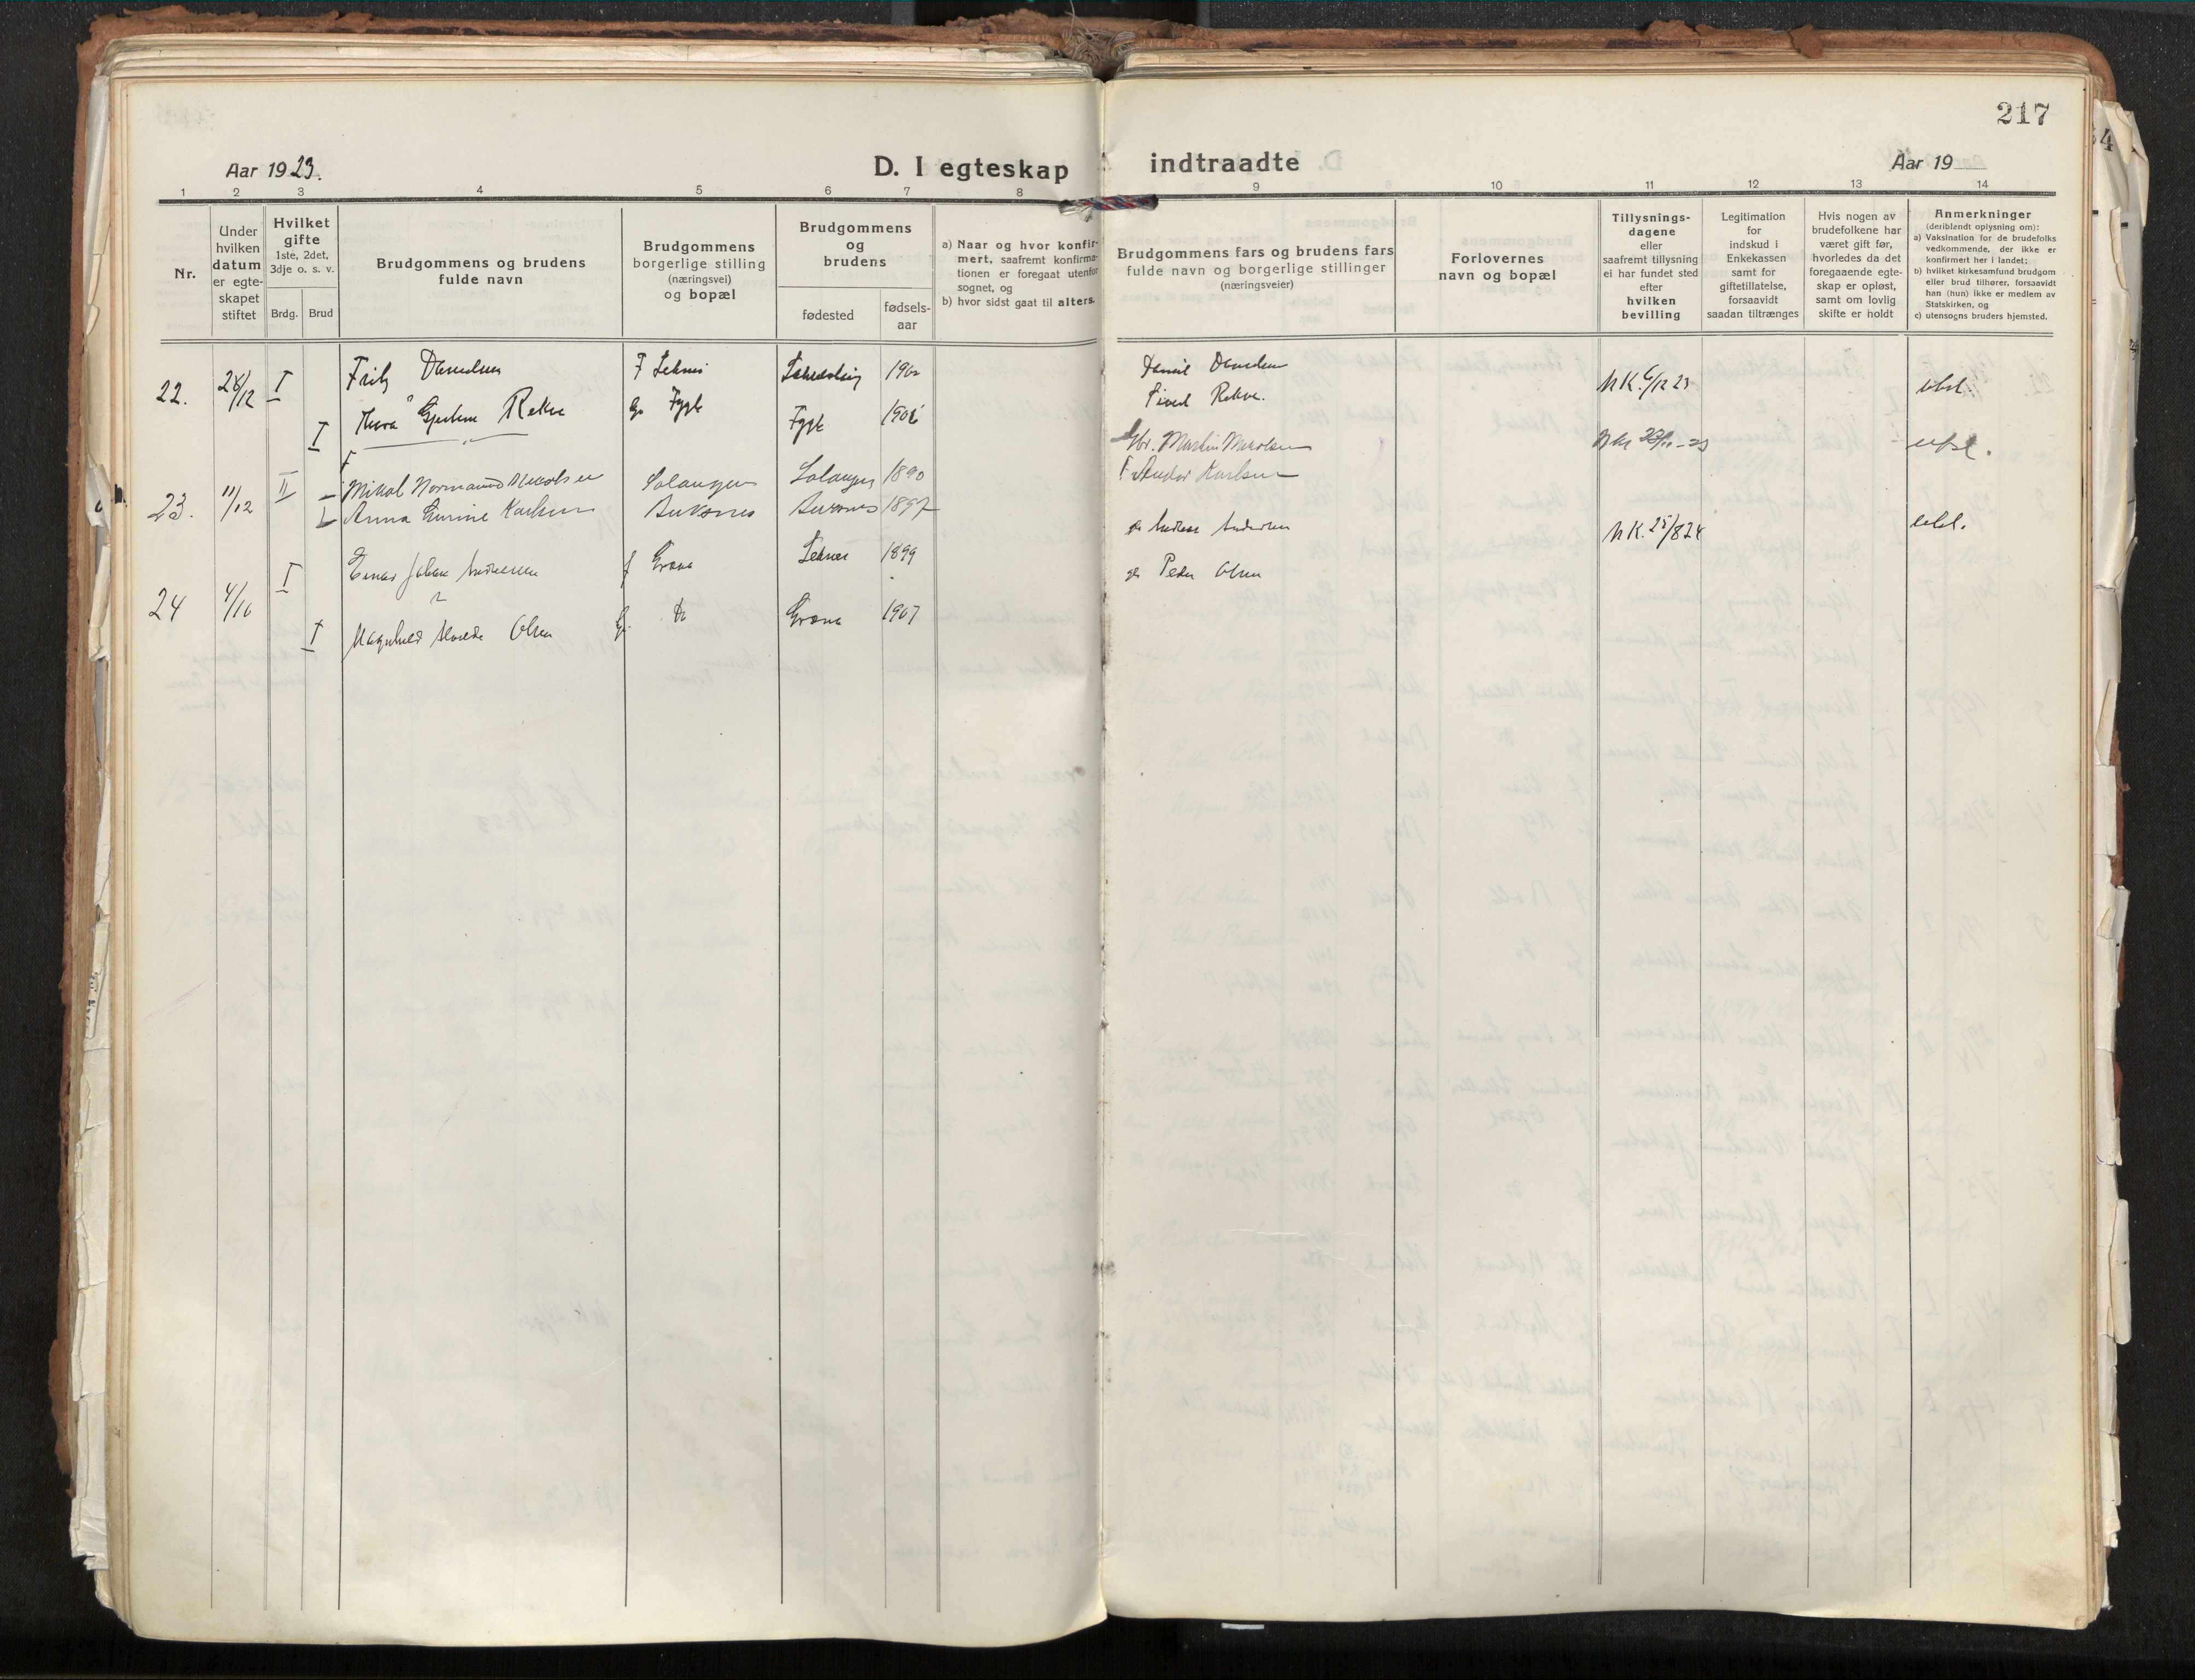 217
Aar 1923.
D. I egteskap indtraadte
Aar 19
1 2 3 4 5 6 7 8 9 10 11 12 13 14
Nr.
Under
hvilken
datum
er egte-
skapet
stiftet
Hvilket
gifte
1ste, 2det,
3dje o. s. v.
Brdg. Brud
Brudgommens og brudens
fulde navn
Brudgommens
borgerlige stilling
(næringsvei)
og bopæl
Brudgommens
og
brudens
fødested
fødsels-
aar
a) Naar og hvor konfir-
mert, saafremt konfirma-
tionen er foregaat utenfor
sognet, og
b) hvor sidst gaat til alters.
Brudgommens fars og brudens fars
fulde navn og borgerlige stillinger
(næringsveier)
Forlovernes
navn og bopæl
Tillysnings-
dagene
eller
saafremt tillysning
ei har fundet sted
efter
hvilken
bevilling
Legitimation
for
indskud i
Enkekassen
samt for
giftetillatelse,
forsaavidt
saadan tiltrænges
Hvis nogen av
brudefolkene har
været gift før,
hvorledes da det
foregaaende egte-
skap er opløst,
samt om lovlig
skifte er holdt
Anmerkninger
(deriblandt oplysning om):
a) Vaksination for de brudefolks
vedkommende, der ikke er
konfirmert her i landet;
b) hvilket kirkesamfund brudgom
eller brud tilhører, forsaavidt
han (hun) ikke er medlem av
Statskirken, og
c) utensogns bruders hjemsted.
22. 26/12 I Danielsen F Leknes 190
Daniel Danielsen
N.K. 6/12 23
I Rekve Fygle Fygle
Sivert Rekve.
23. 11/12 II Mikal Normann Salangen Salangen 1890
Martin
I Anna Karlsen Buksnes Buksnes 1897
Karlsen
24 4/10 I Einar Johan Andreassen f Gravn Leknes 1899
N.K. 25/8 24
I Olsen Do Gravn 1907
Peder Olsen